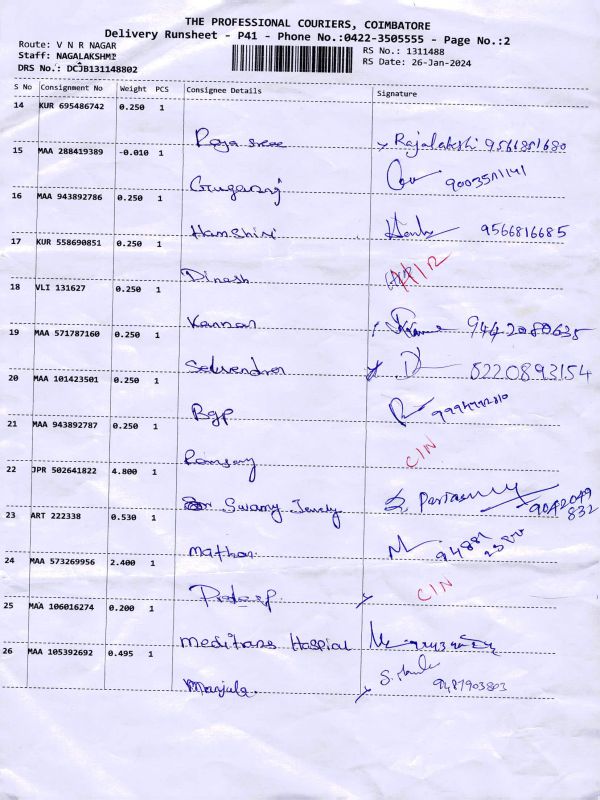 THE PROFESSIONAL COURIERS, COIMBATORE
Delivery Runsheet - P41 - Phone No.:0422-3505555 - Page No.:2
Route: V N R NAGAR
Staff: NAGALAKSHMI
DRS No.: DCJB131148802
RS No.: 1311488
RS Date: 26-Jan-2024
S No Consignment No Weight PCS Consignee Details Signature
14 KUR 695486742 0.250 1
Raja sree Rajalakshi 9566851680
15 MAA 288419389 -0.010 1
9003511141
16 MAA 943892786 0.250 1
Hamshini 9566816685
17 KUR 558690851 0.250 1
Dinesh
18 VLI 131627 0.250 1
Kannan 9442080635
19 MAA 571787160 0.250 1
Selvendran 8220893154
20 MAA 101423501 0.250 1
Bgp
21 MAA 943892787 0.250 1
Ramsamy CIN
22 JPR 502641822 4.800 1
Swamy Jewely 9042049
832
23 ART 222338 0.530 1
Mathan
24 MAA 573269956 2.400 1
Pradeep. CIN
25 MAA 106016274 0.200 1
Meditrans Hospial
26 MAA 105392692 0.495 1
Manjula. 9487903803